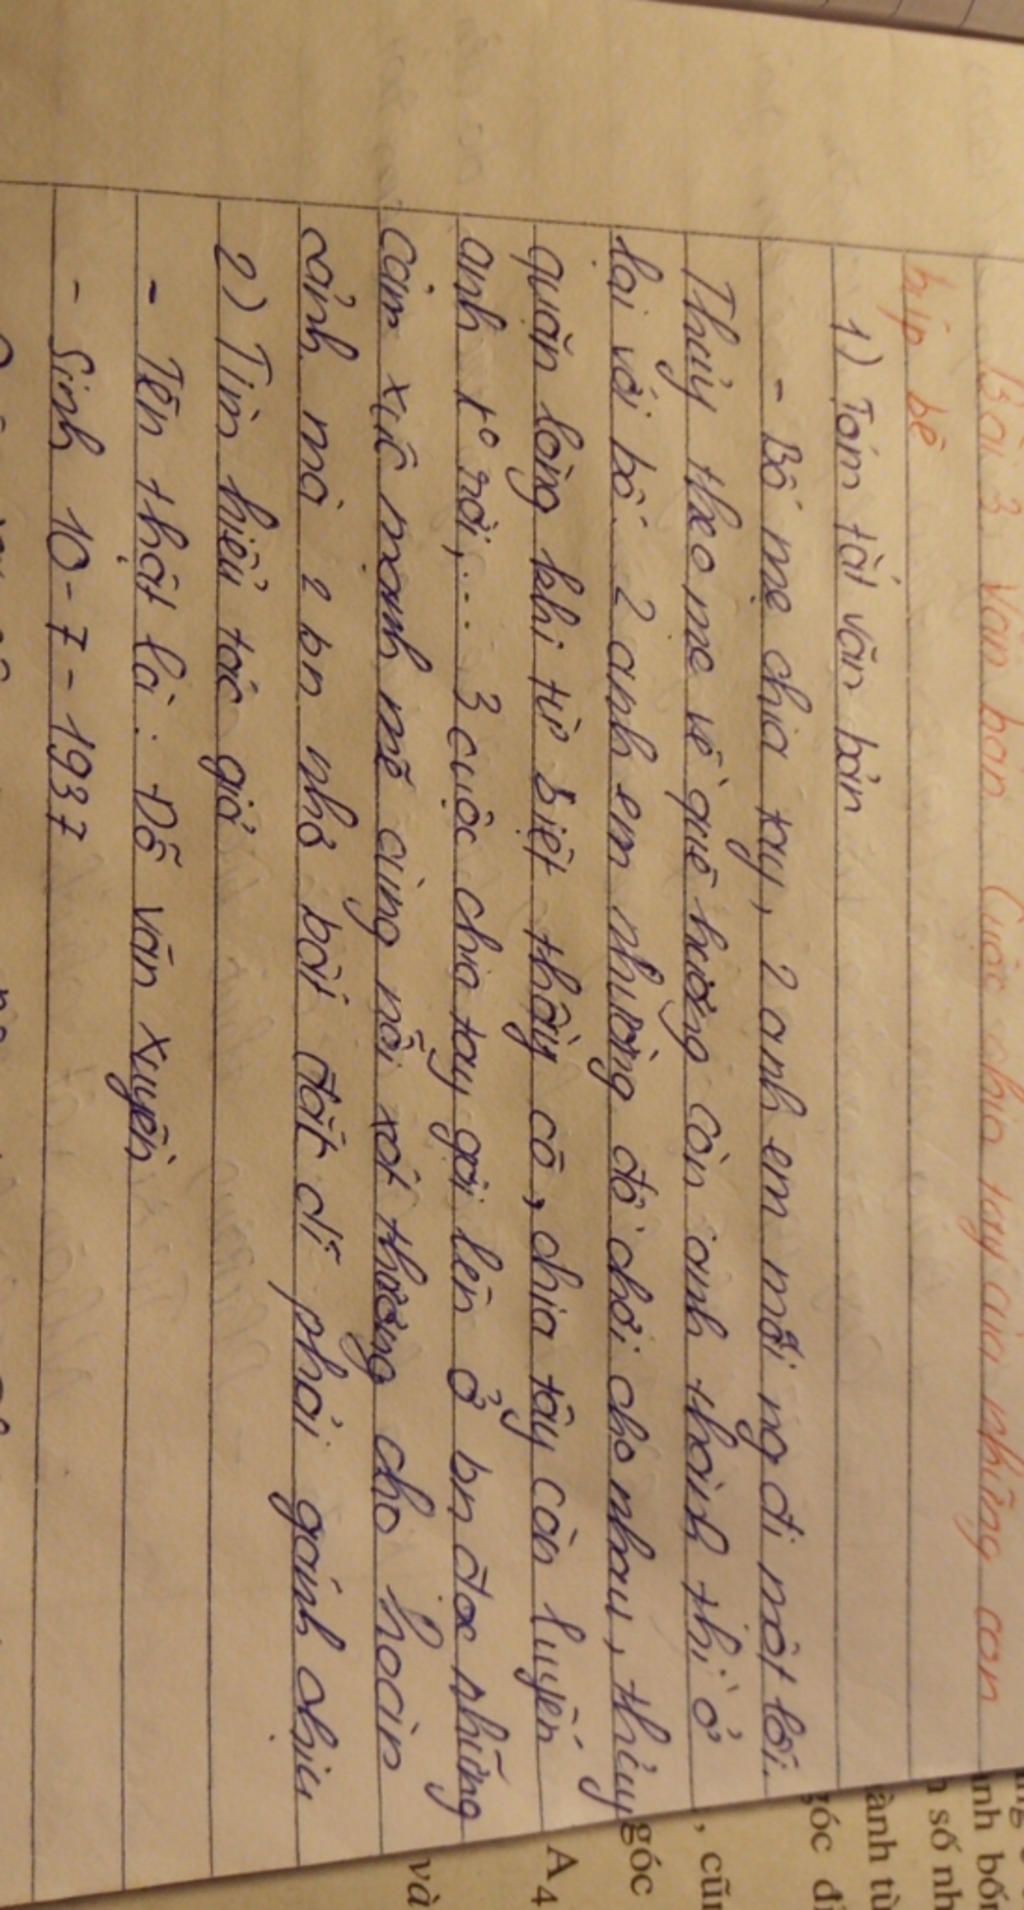 Bài 3. Văn bản Cuộc chia tay của những con
búp bê
1) Tóm tắt văn bản
- Bố mẹ chia tay, 2 anh em mỗi ng đi một lối.
Thủy theo mẹ về quê hương còn anh thành thì ở
lại với bố. 2 anh em nhường đồ chơi cho nhau, thủy
quặn lòng khi từ biệt thầy cô, chia tây còn luyến
anh rồi,... 3 cuộc chia tay gợi lên ở bn đọc những
cảm xúc mạnh mẽ cùng nỗi xót thương cho hoàn
cảnh mà 2 bn nhỏ bất đắt dĩ phải gánh chịu
2) Tìm hiểu tác giả
- Tên thật là: Đỗ Văn Xuyền
- Sinh 10-7-1937
nh bốn
n số nh
ành từ
góc đi
, cũn
góc
A4
và